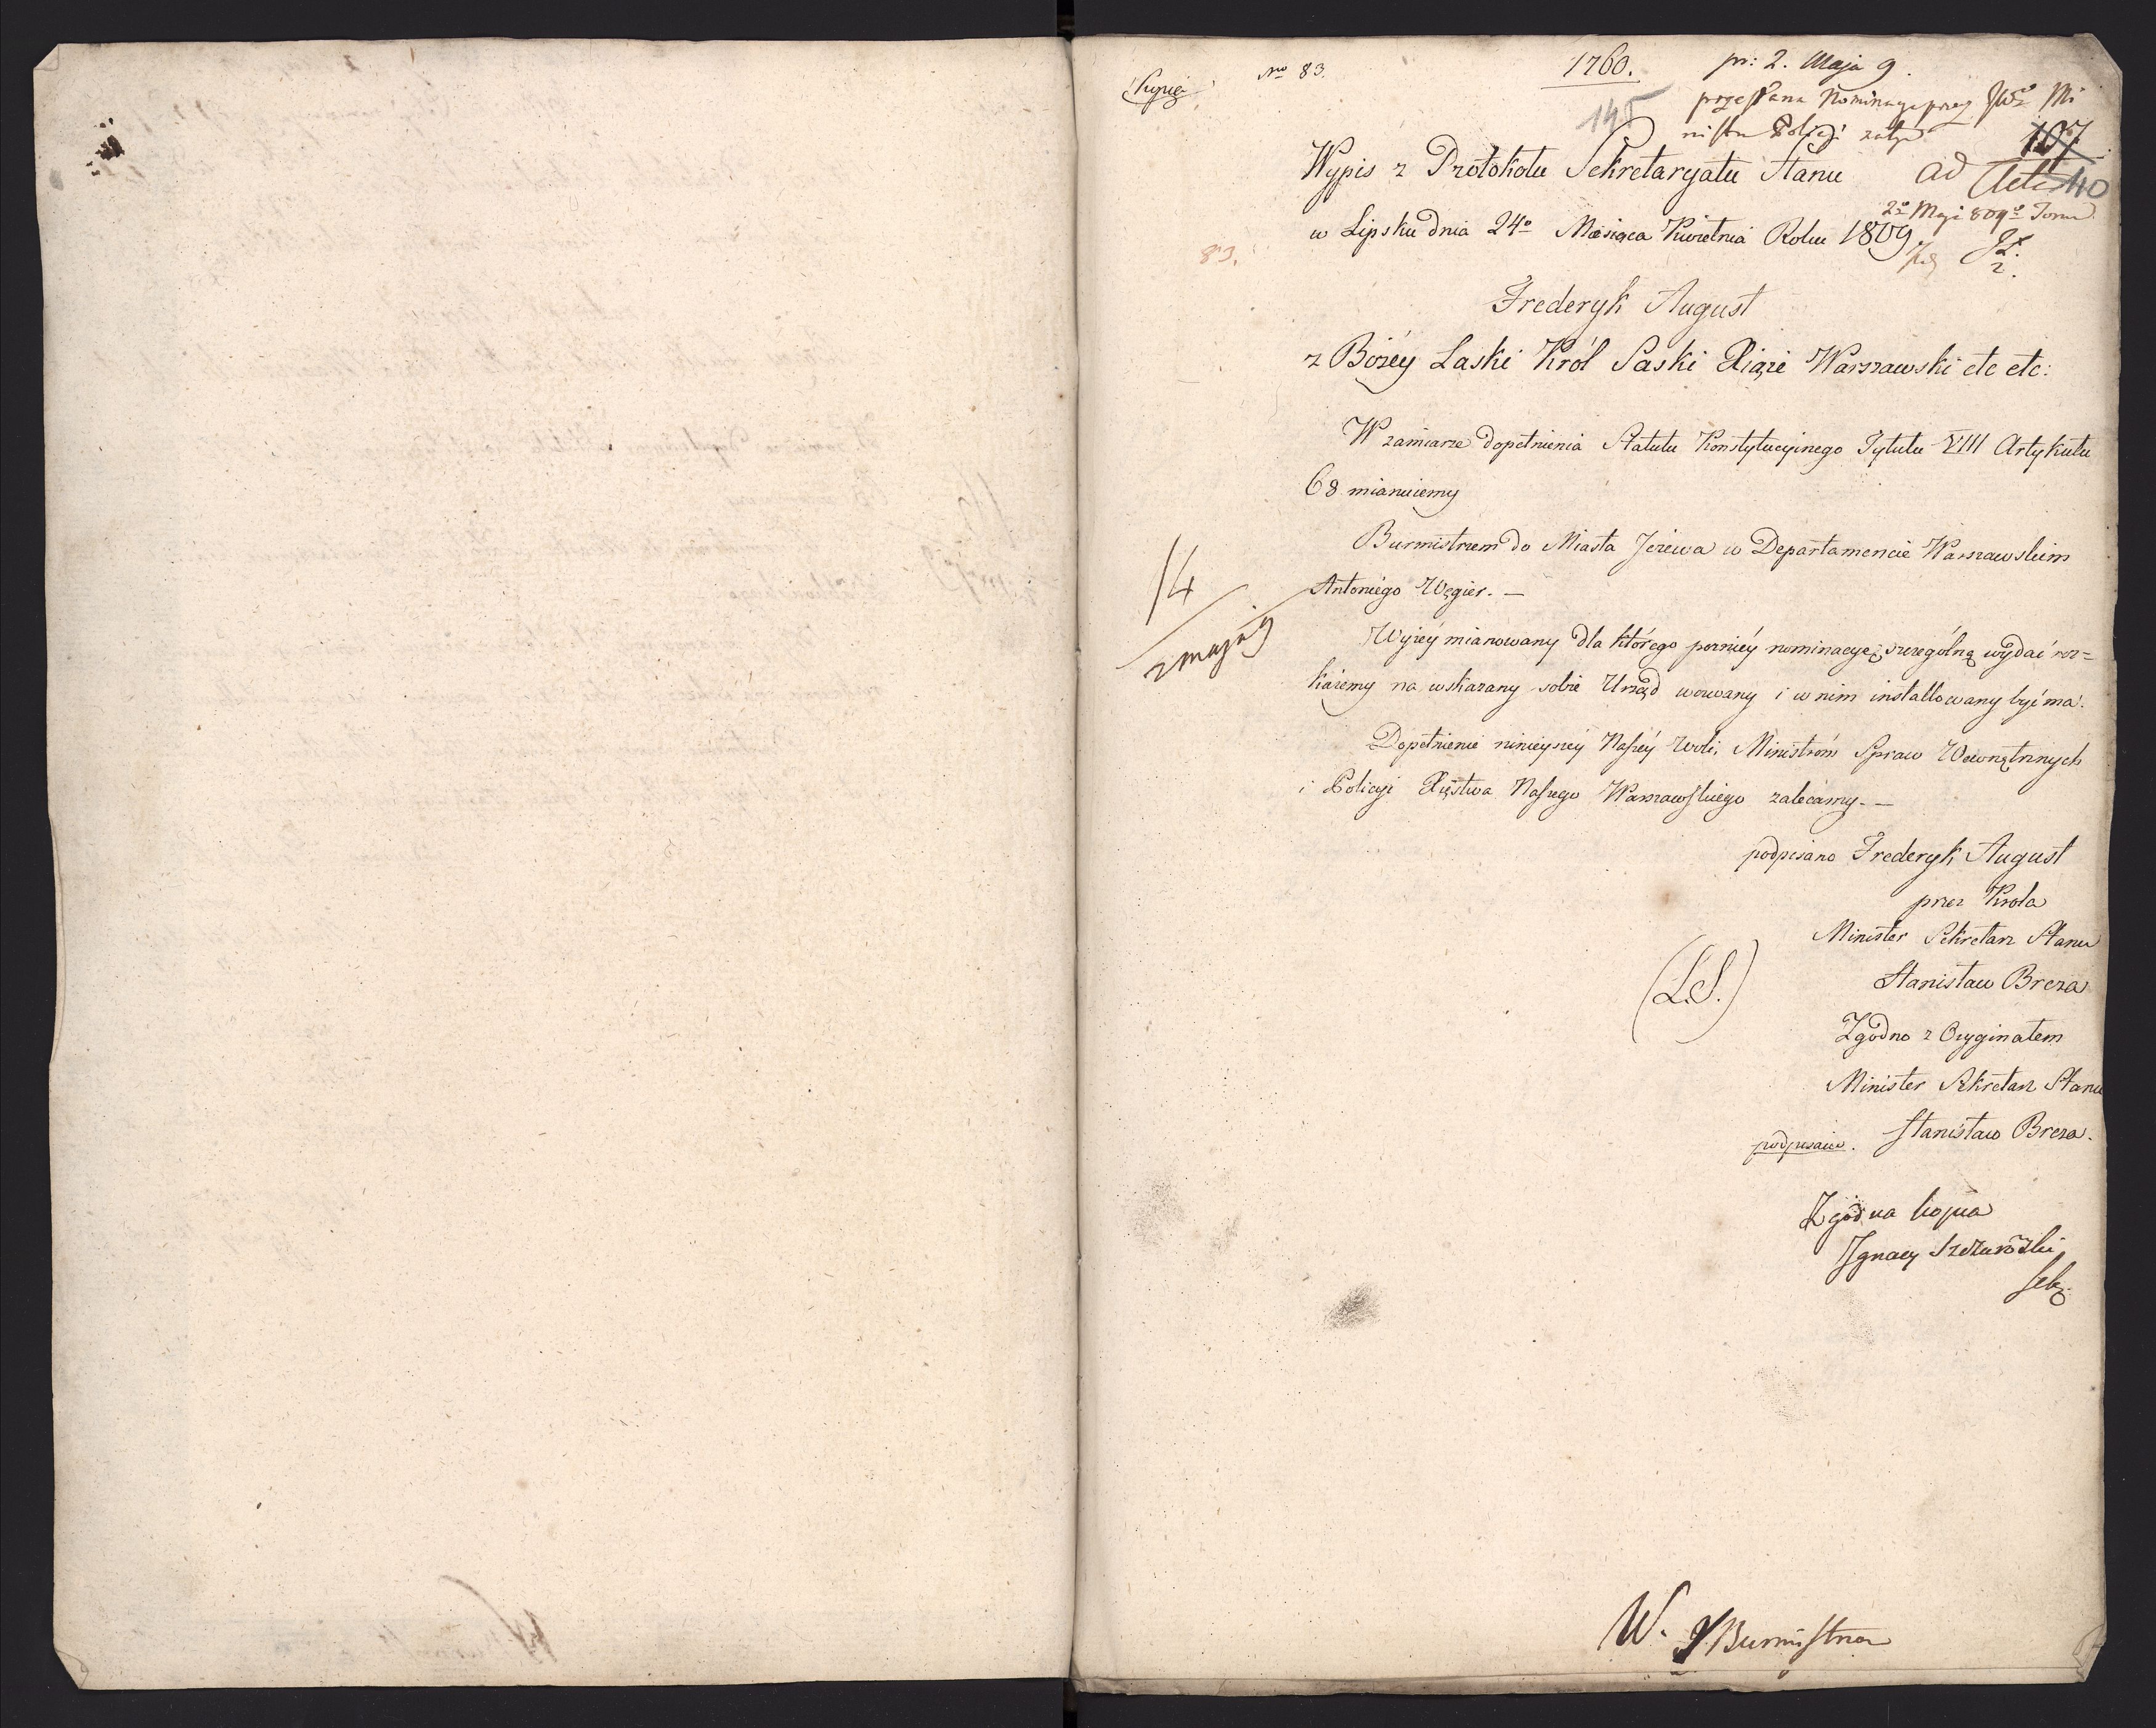 Kopia
No 83.
1760.
pr: 2. Maja 9.
przesłana Nominacya przez JWo Mi
nistra Policyi
145
107
Wypis z Protokołu Sekretaryatu Stanu
ad Acta
40
2o Maji 809o
w Lipsku dnia 24o Miesiąca Kwietnia Roku 1809
83.
Frederyk August
z Bożéy Łaski Król Saski Xiąże Warszawski etc etc:
W zamiarze dopełnienia Statutu Konstytucyinego Tytułu VIII Artykułu
68 mianuiemy
Burmistrzem do Miasta Jeżewa w Departamencie Warszawskim
Antoniego Węgier. —
14
2 maja 9
Wyżéy mianowany dla którego pozniéy nominacyę szczególną wydać roz=
każemy na wskazany sobie Urząd wezwany i w nim installowany być ma.
Dopełnienie ninieyszéy Naszéy woli, Ministróm Spraw Wewnętrznych
i Policyi Xięstwa Naszego Warszawskiego zalécámy. —
podpisano Frederyk August
przez Krola
Minister Sekretarz Stanu
(L.S.)
Stanisław Breza
Zgodno z Oryginałem
Minister Sekretarz Stanu
podpisano. Stanisław Breza.
Zgodna kopia
Ignacy
Sek.
W. Burmistrza